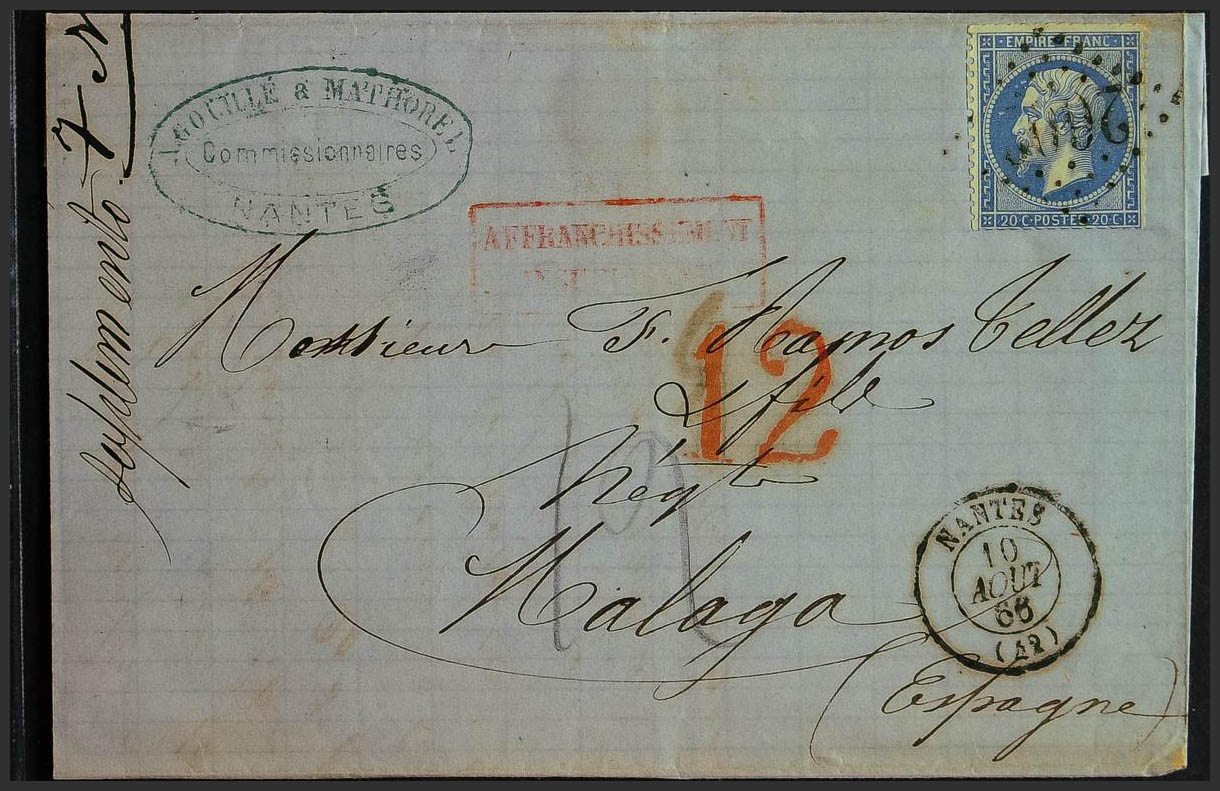 AGOUILLÉ & MATHOREL
Commissionnaires
NANTES
EMPIRE FRANC
20·C·POSTES·20·C
AFFRANCHISSEMENT
Monsieur F. Ramos Tellez
12
& fils
Négt
Malaga
(Espagne)
NANTES
10
AOUT
66
(42)